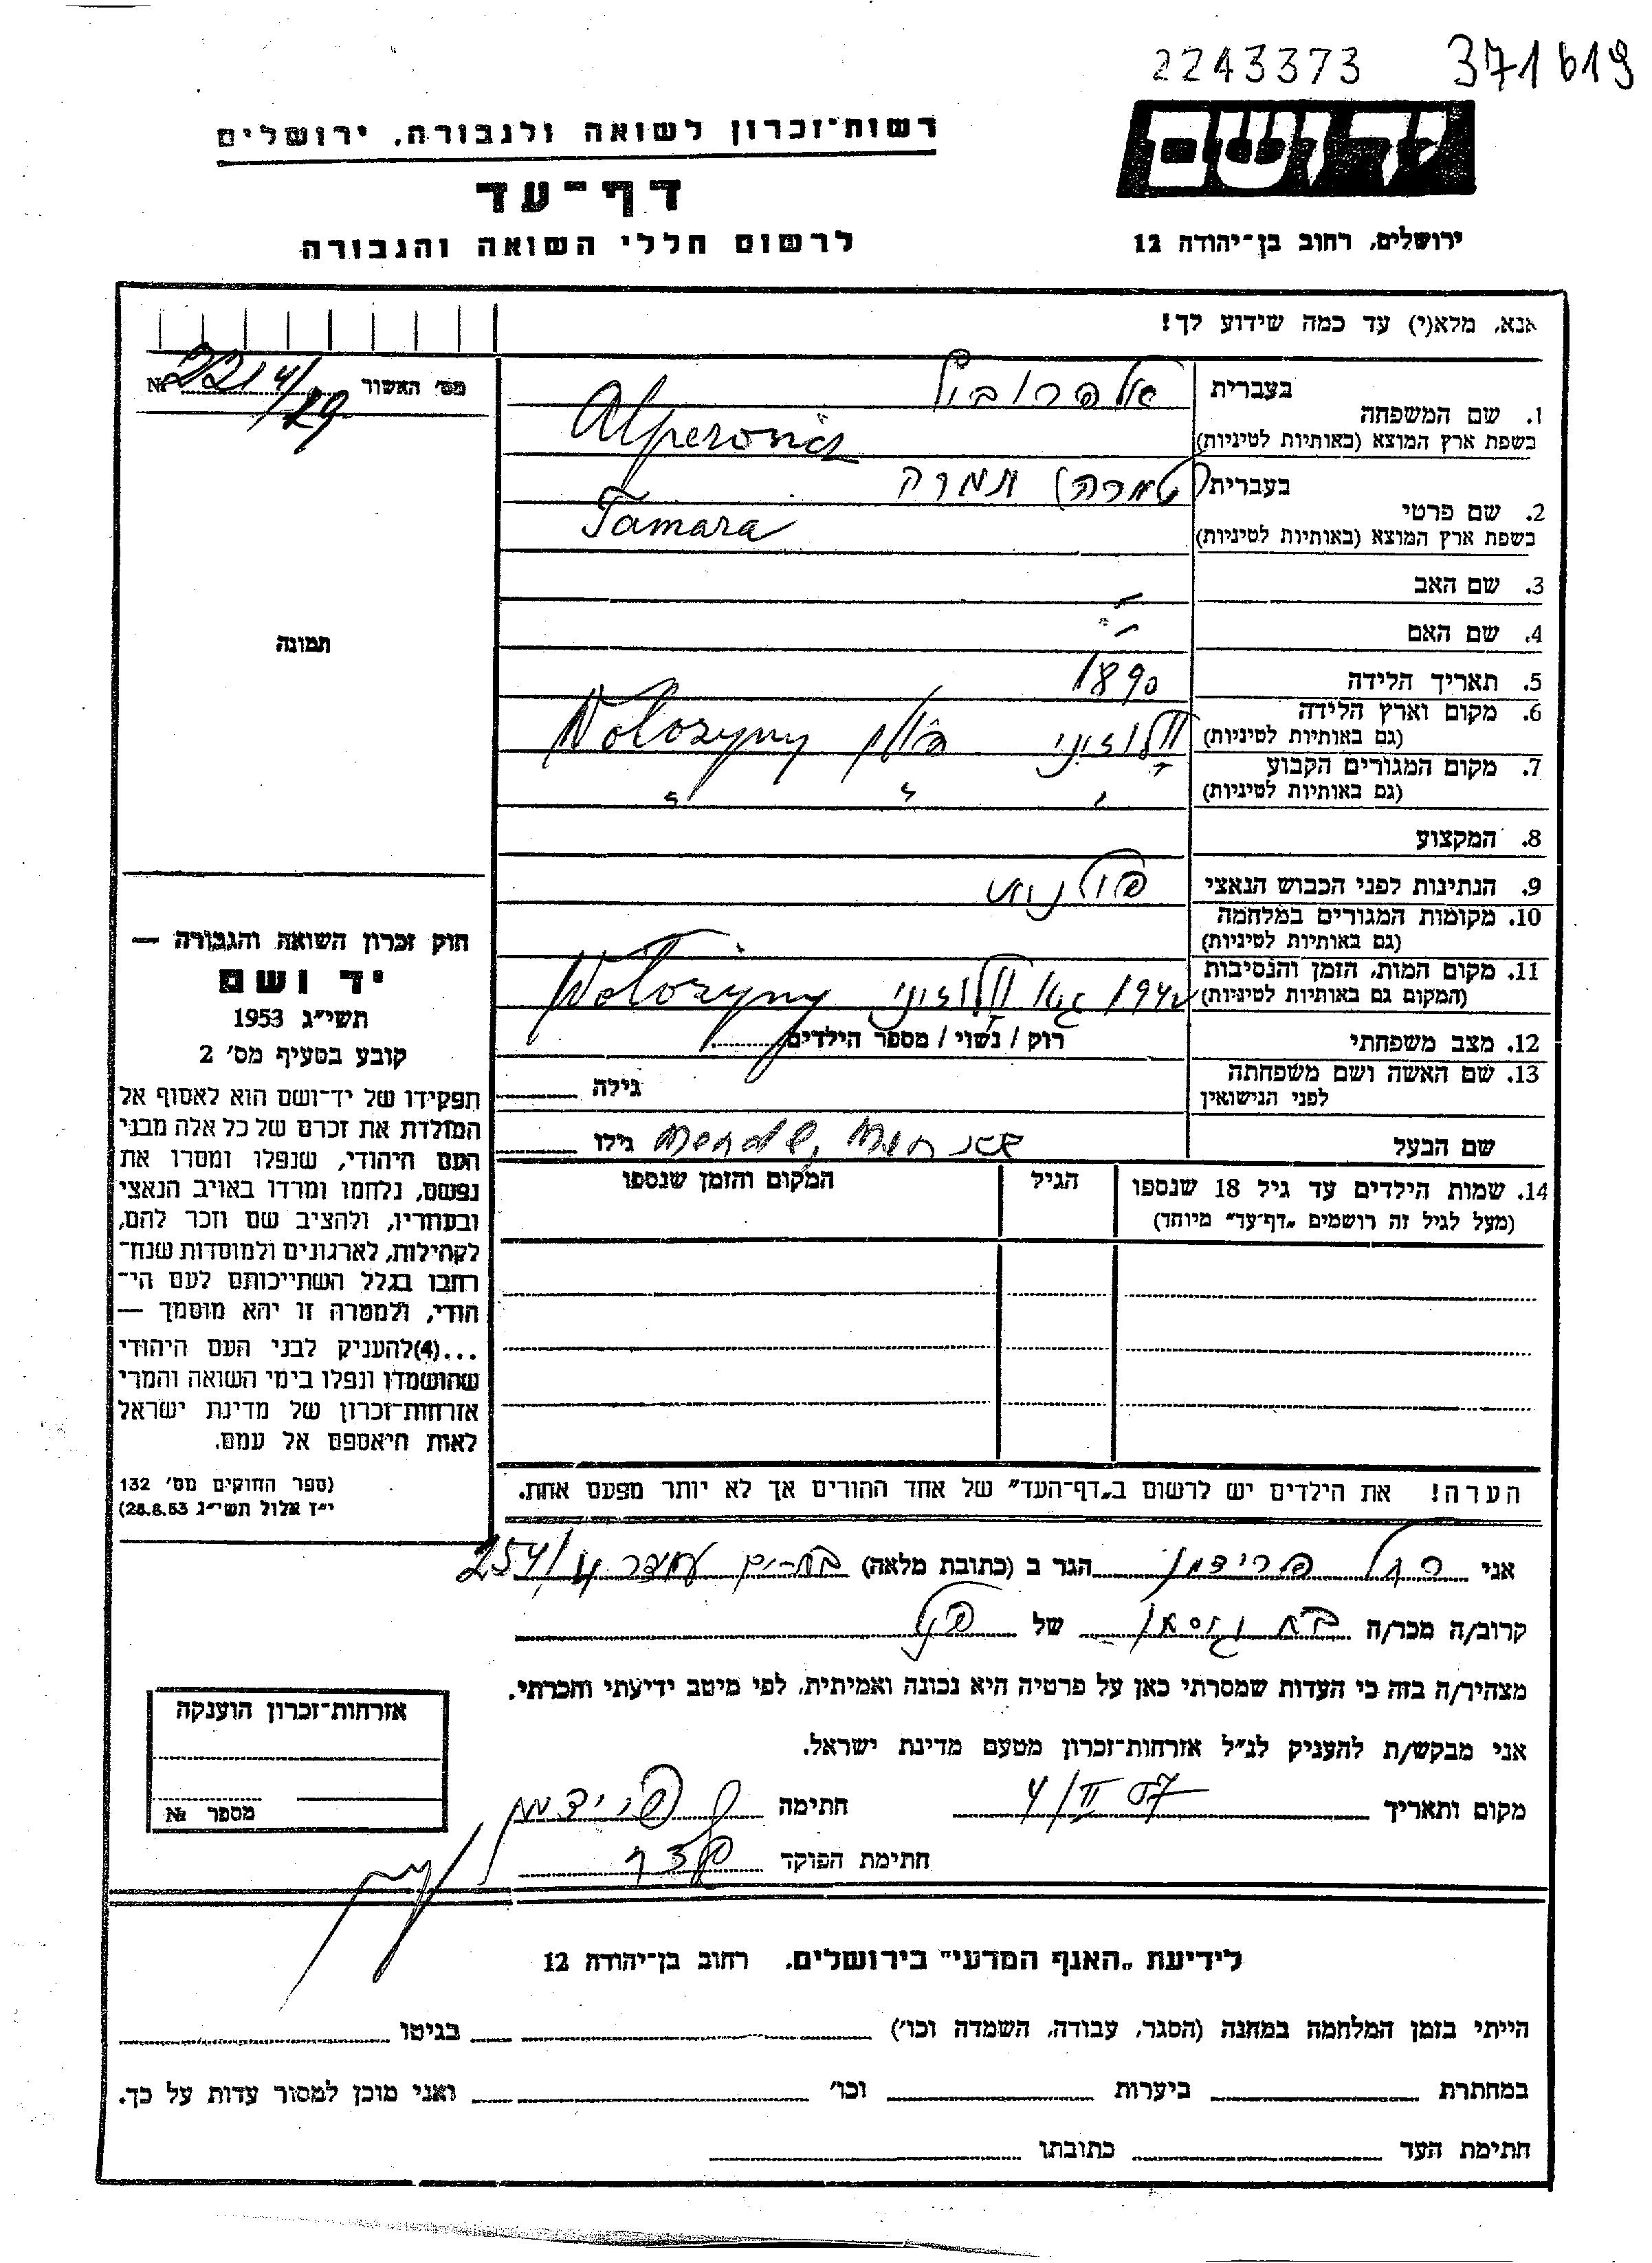 2243373 371619
ידושם
רשות־זכרון לשואה ולגבורה, ירושלים
דף־עד
לרשום חללי השואה והגבורה
ירושלים, רחוב בן־יהודה 12
אנא, מלא(י) עד כמה שידוע לך!
מס׳ האשור № 2214/29
בעברית
1. שם המשפחה
בשפת ארץ המוצא (באותיות לטיניות) Alperowicz
בעברית (טמרה) תמרה
2. שם פרטי
בשפת ארץ המוצא (באותיות לטיניות) Tamara
3. שם האב -
4. שם האם -
תמונה
5. תאריך הלידה 1890
6. מקום וארץ הלידה
(גם באותיות לטיניות) וולוז׳יני פולין Wolozyny
7. מקום המגורים הקבוע
(גם באותיות לטיניות) " " "
8. המקצוע
9. הנתינות לפני הכבוש הנאצי פולנית
10. מקומות המגורים במלחמה
(גם באותיות לטיניות)
11. מקום המות, הזמן והנסיבות
(המקום גם באותיות לטיניות) 1942 גטו וולוז׳יני Wolozyny
12. מצב משפחתי רוק / נשוי / מספר הילדים
13. שם האשה ושם משפחתה
לפני הנישואין גילה
שם הבעל גילו
14. שמות הילדים עד גיל 18 שנספו הגיל המקום והזמן שנספו
(מעל לגיל זה רושמים „דף־עד״ מיוחד)
הערה! את הילדים יש לרשום ב„דף־העד״ של אחד ההורים אך לא יותר מפעם אחת.
חוק זכרון השואה והגבורה —
יד ושם
תשי״ג 1953
קובע בסעיף מס׳ 2
תפקידו של יד־ושם הוא לאסוף אל
המולדת את זכרם של כל אלה מבני
העם היהודי, שנפלו ומסרו את
נפשם, נלחמו ומרדו באויב הנאצי
ובעוזריו, ולהציב שם וזכר להם,
לקהילות, לארגונים ולמוסדות שנח־
רבו בגלל השתייכותם לעם הי־
הודי, ולמטרה זו יהא מוסמך —
...(4) להעניק לבני העם היהודי
שהושמדו ונפלו בימי השואה והמרי
אזרחות־זכרון של מדינת ישראל
לאות היאספם אל עמם.
(ספר החוקים מס׳ 132
י״ז אלול תשי״ג 28.8.53)
אני רחל פרידמן הגר ב (כתובת מלאה) 254/4
קרוב/ה מכר/ה של
מצהיר/ה בזה כי העדות שמסרתי כאן על פרטיה היא נכונה ואמיתית, לפי מיטב ידיעתי והכרתי.
אני מבקש/ת להעניק לנ״ל אזרחות־זכרון מטעם מדינת ישראל.
מקום ותאריך 4/II 57 חתימה פרידמן
חתימת הפוקד
אזרחות־זכרון הוענקה
מספר №
לידיעת „האגף המדעי״ בירושלים. רחוב בן־יהודה 12
הייתי בזמן המלחמה במחנה (הסגר, עבודה, השמדה וכו׳) בגיטו
במחתרת ביערות וכו׳ ואני מוכן למסור עדות על כך.
חתימת העד כתובתו